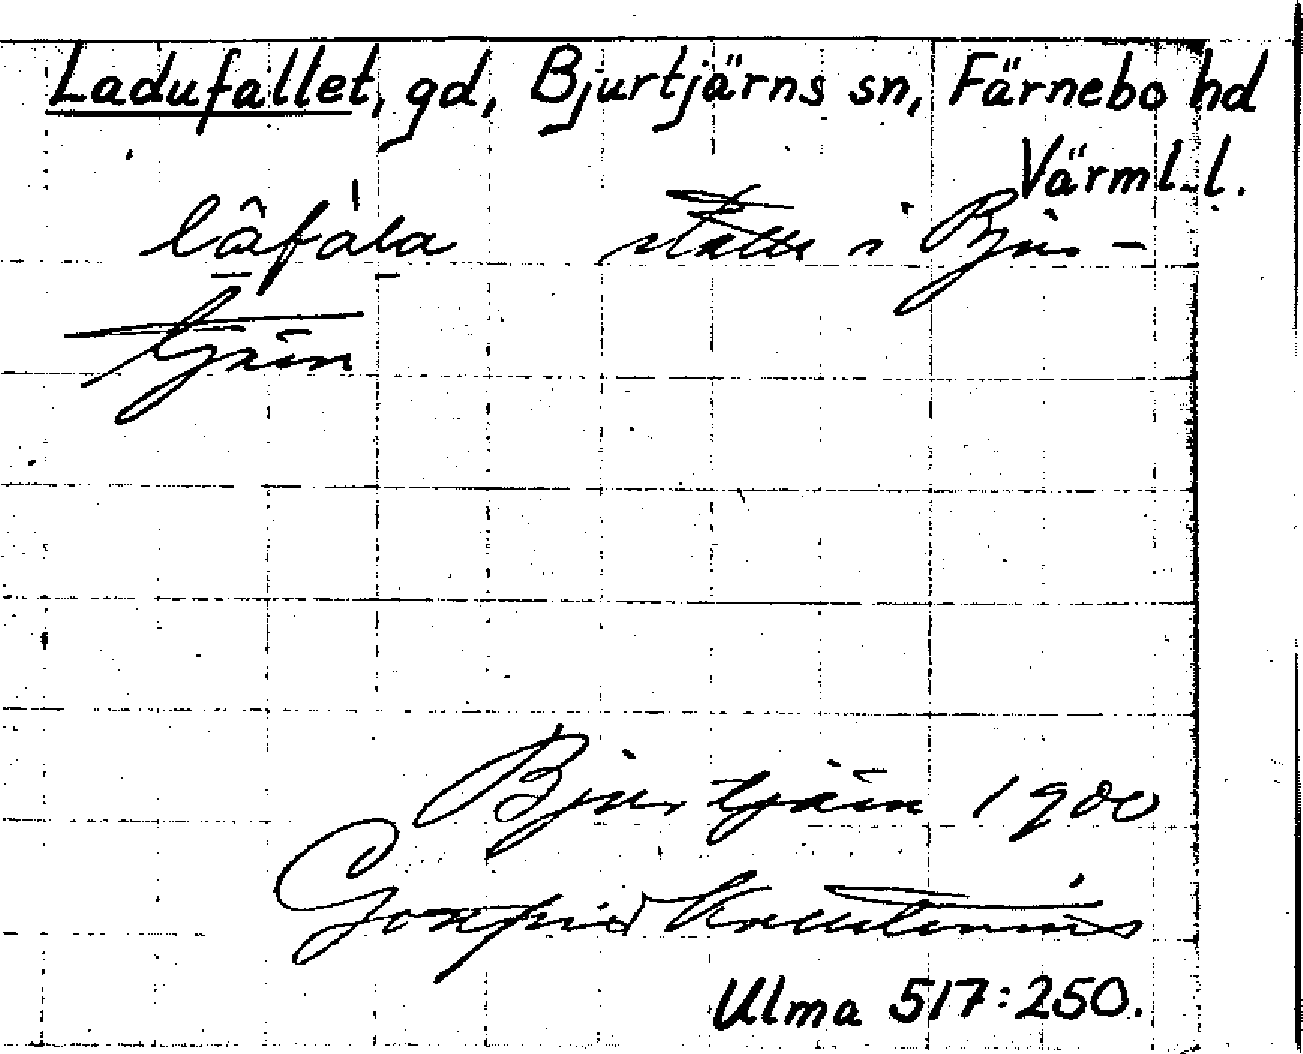 Ladufallet, gd, Bjurtjärns sn, Färnebo hd
Värml. l.
lâfàla ställe i Bjur-
tjärn
Bjurtjärn 1900
Gottfrid Kallstenius
Ulma 517:250.